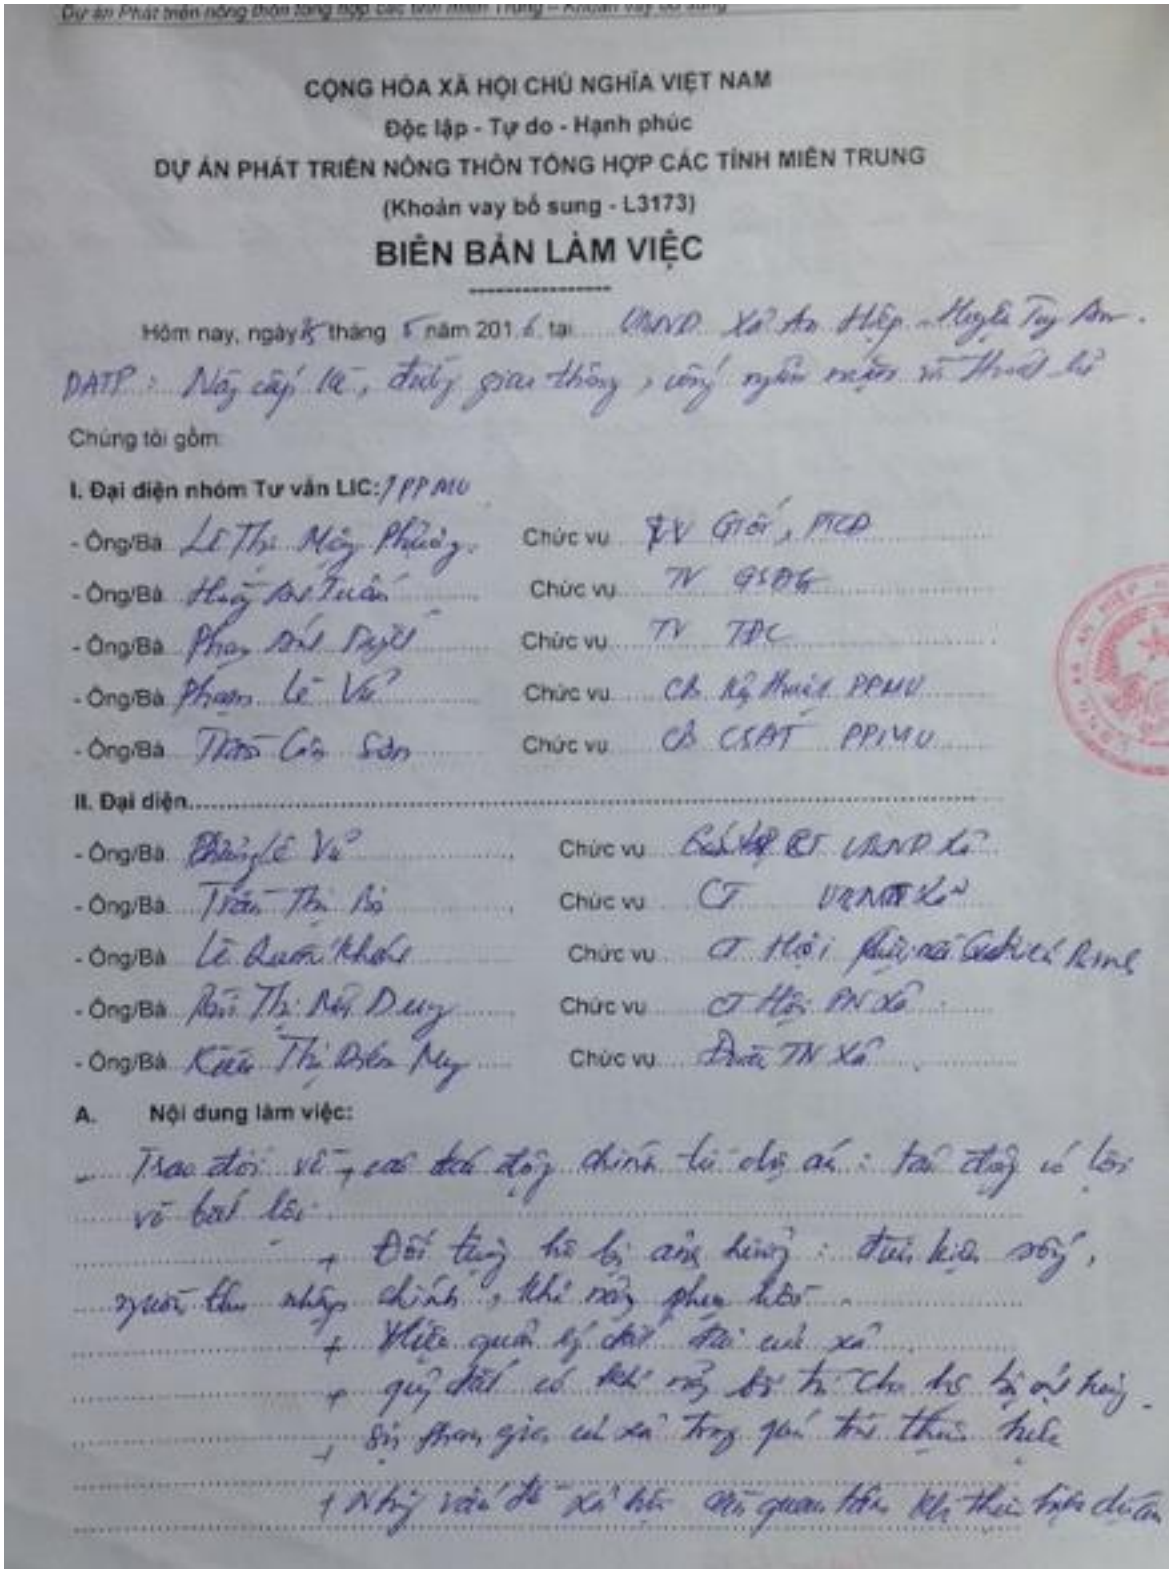 Dự án Phát triển nông thôn tổng hợp các tỉnh miền Trung – Khoản vay bổ sung
CỘNG HÒA XÃ HỘI CHỦ NGHĨA VIỆT NAM
Độc lập - Tự do - Hạnh phúc
DỰ ÁN PHÁT TRIỂN NÔNG THÔN TỔNG HỢP CÁC TỈNH MIỀN TRUNG
(Khoản vay bổ sung - L3173)
BIÊN BẢN LÀM VIỆC
Hôm nay, ngày tháng 5 năm 2016, tại UBND Xã An Hiệp - Huyện Tuy An.
DATP: Nâng cấp kè, đường giao thông, cống ngăn mặn và thoát lũ
Chúng tôi gồm:
I. Đại diện nhóm Tư vấn LIC:/PPMU
- Ông/Bà Lê Thị Mộng Phượng Chức vụ TV Giới, PTCĐ
- Ông/Bà Tuấn Chức vụ TV GSĐG
- Ông/Bà Phan Chức vụ TV TĐC
- Ông/Bà Phạm Lê Vũ Chức vụ CB Kỹ thuật PPMU
- Ông/Bà Sơn Chức vụ CB CSAT PPMU
II. Đại diện
- Ông/Bà Lê Vũ Chức vụ CT UBND Xã
- Ông/Bà Trần Thị Chức vụ CT Xã
- Ông/Bà Lê Chức vụ CT Hội
- Ông/Bà Thị Dung Chức vụ CT Hội PN Xã
- Ông/Bà Thị Diễm My Chức vụ Đoàn TN Xã
A. Nội dung làm việc:
- Trao đổi về + các tác động chính từ dự án: tác động có lợi
và bất lợi
+ Đối tượng hộ bị ảnh hưởng: điều kiện sống,
nguồn thu nhập chính, khả năng phục hồi
+ Việc quản lý đất đai của xã
+ quỹ đất có khả năng bố trí cho hộ bị ảnh hưởng
+ Sự tham gia của xã trong quá trình thực hiện
+ Những vấn đề xã hội cần quan tâm khi thực hiện dự án